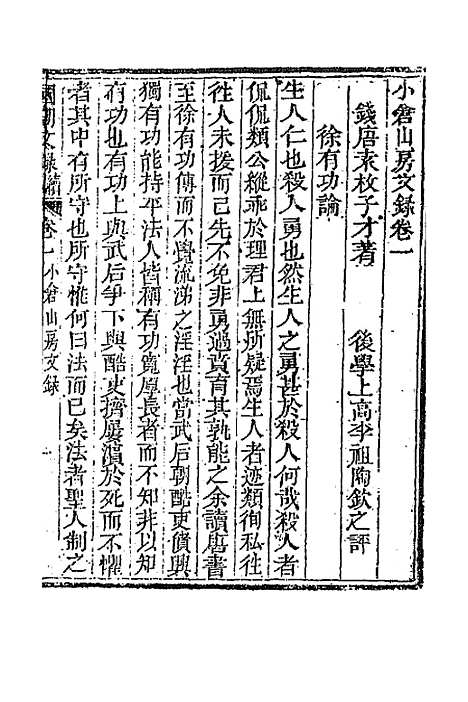 小倉山房文錄卷一
錢唐袁枚子才著 後學上高李祖陶欽之評
徐有功論
生人仁也殺人勇也然生人之勇甚於殺人何哉殺人者
侃侃類公縱乖於理君上無所疑焉生人者迹類徇私往
往人未援而己先不免非勇過賁育其孰能之余讀唐書
至徐有功傳而不覺流涕之淫淫也當武后朝酷吏僨興
獨有功能持平法人皆稱有功寬厚長者而不知非以知
有功也有功上與武后爭下與酷吏擠屢瀕於死而不懼
者其中有所守也所守惟何曰法而已矣法者聖人制之
國朝文錄續編 卷一小倉山房文錄